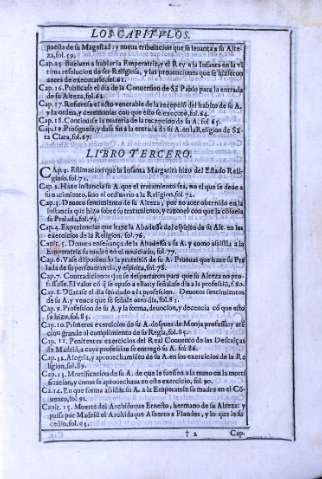 LOS CAPITVLOS.
puesta de su Magestad: y nueua tribulacion que se leuanta a su Alte-
za, fol.59.
Cap.15. Bueluen a hablar la Emperatriz, y el Rey a la Infanta en la vl
tima resolucion de ser Religiosa, y las preuenciones que se hazen
antes de executarlo, fol.61.
Cap.16. Publicase el dia de la Conuersion de Sã Pablo para la entrada
de su Alteza, fol.62.
Cap.17. Refierese el acto venerable de la recepciõ del habito de su A.
y la orden, y ceremonias con que esto se executò, fol.64.
Cap.18. Continuase la materia de la recepcion de su A. fol.65.
Cap.19. Prosiguese, y dase fin a la entrada de su A. en la Religion de Sã-
ta Clara, fol.67.
LIBRO TERCERO.
CAp.1. Estimacion que la Infanta Margarita hizo del Estado Reli-
gioso, fol.71.
Cap.2. Haze instancia su A. que el tratamiento sea, no el que se deue a
su nacimiento, sino el ordinario a la Religion, fol.72.
Cap.3. Deuoto sentimiento de su Alteza, por no auer obtenido en la
instancia que hizo sobre su tratamiento, y razones con que la cõsuela
su Prelada, fol.74.
Cap.4. Experiencias que haze la Abadesa del espiritu de su Alt. en los
exercicios de la Religion, fol.76.
Capit.5. Deuota enseñança de la Abadesa a su A. y como asistia a la
Emperatriz su madre en el nouiciado, fol.77.
Cap.6. Vase disponiendo la profesiõ de su A. Primas que haze su Pre
lada de su perseuerancia, y espiritu, fol.78.
Cap.7. Contradiciones que se despertaron para que su Alteza no pro-
fessasse. El valor cõ que se opuso a ellas, y señalase dia a la profesiõ, f.80.
Cap.8. Dilatase el dia señalado a la profession. Deuotos sentimientos
de su A. y vence que se señale otro dia, fol.83.
Cap.9. Profession de su A. y la forma, deuocion, y decencia cõ que esto
se hizo, fol.85.
Cap.10. Primeros exercicios de su A. despues de Monja professa, y aten-
cion grande al cumplimiento de su Regla, fol.85.
Cap. 11. Penitentes exercicios del Real Conuento de las Descalças
de Madrid, a cuya profession se entregò su A. fol.86.
Cap.12. Alegria, y aprouechamiẽto de su A. en los exercicios de la Re
ligion, fol.89.
Cap.13. Mortificacion de su A. de que le seruian a la mano en la mortifi
cacion, y como se aprouechaua en este exercicio, fol.90.
Cap.14. En que forma asistia su A. a la Emperatriz su madre en el Cõ-
uento, fol.91.
Capit. 15. Muerte del Archiduque Ernesto, hermano de su Alteza: y
passa por Madrid el Archiduque Alberto a Flandes, y lo que le su-
cediò, fol.93.
† 2
Cap.